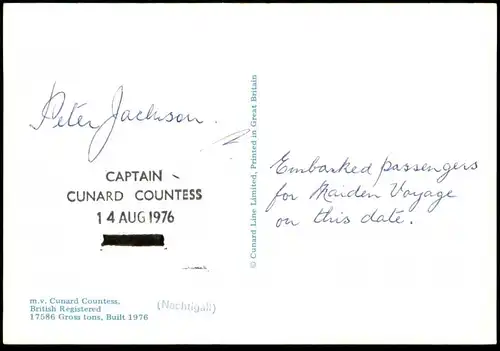 Peter Jackson.
CAPTAIN
CUNARD COUNTESS
14 AUG 1976
m.v. Cunard Countess,
British Registered
17586 Gross tons, Built 1976
(Nachtigall)
© Cunard Line Limited, Printed in Great Britain
Embarked passengers
for Maiden Voyage
on this date.